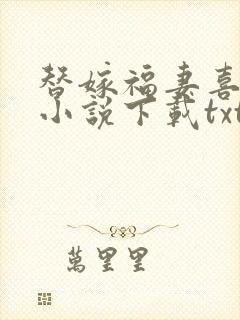 替嫁福妻喜
小说下载txt
萬里里